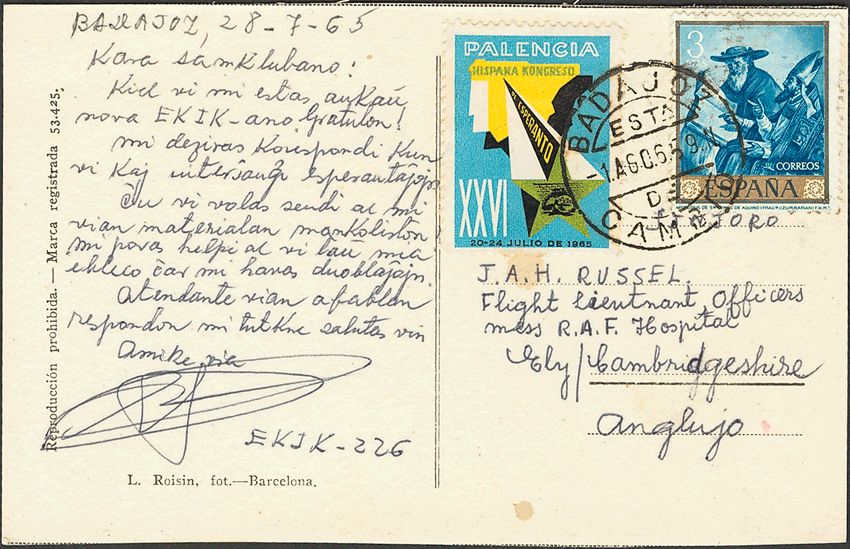 BADAJOZ, 28-7-65
Kara samklubano!
Kiel vi mi estas ankaŭ
nova EKIK-ano Gratulon!
mi deziras Korispondi kun
vi kaj interŝanĝi esperantaĵojn
Ĉu vi volas sendi al mi
vian materialan mankliston?
mi povas helpi al vi laŭ mia
ebleco ĉar mi havas duoblaĵojn.
Atendante vian afablan
respondon mi tutkne salutas vin
Amike via
EKIK-226
L. Roisin, fot.—Barcelona.
Reproducción prohibida. — Marca registrada 53.425.
PALENCIA
HISPANA KONGRESO
DE ESPERANTO
XXVI
20-24 JULIO DE 1965
BADAJOZ
ESTA
-1.AGO.65
DE
CAMBIO
3
CORREOS
ESPAÑA
SINJORO
J.A.H. RUSSEL.
Flight Lieutnant Officers
mess R.A.F. Hospital
Ely/Cambridgeshire
Anglujo